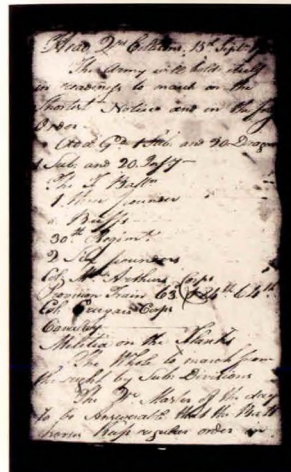 Head Qrs Colletons, 15th Septr
The Army will hold itself
in readiness to march on the
shortest Notice and in the
Order.
Advd Gd 1 Sub. and 30 Dragoons
1 Sub. and 20 Infy
The F. Battn
1 three pounder
Buffs
30th Regimt
2 Six pounders
Col. Mc Arthurs Corps
Provision Train 63d 64th
Col. Corps
Cavalry
Militia on the Flanks
The Whole to march from
the right by Sub Divisions
The Qr Master of the day
to be answerable that the
horses keep regular order